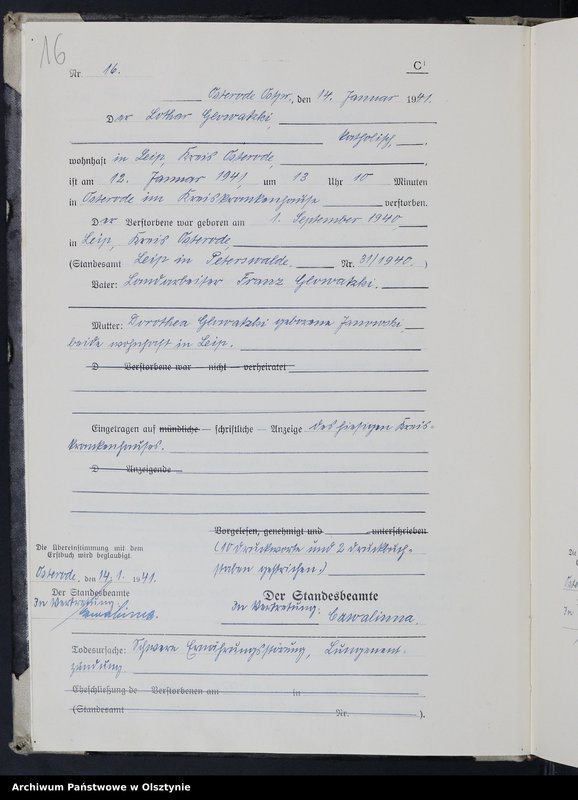 16
Nr. 16. C¹
Osterode Ostpr., den 14. Januar 1941.
Der Lothar Glowatzki,
katholisch,
wohnhaft in Leip, Kreis Osterode,
ist am 12. Januar 1941 um 13 Uhr 10 Minuten
in Osterode im Kreiskrankenhause verstorben.
Der Verstorbene war geboren am 1. September 1940,
in Leip, Kreis Osterode,
(Standesamt Leip in Peterswalde. Nr. 31/1940.)
Vater: Landarbeiter Franz Glowatzki.
Mutter: Dorothea Glowatzki geborene Janowski,
beide wohnhaft in Leip.
D Verstorbene war nicht verheiratet
Eingetragen auf mündliche schriftliche Anzeige des hiesigen Kreis-
krankenhauses.
D Anzeigende
Vorgelesen, genehmigt und unterschrieben
(10 Druckworte und 2 Druckbuch-
staben gestrichen.)
Der Standesbeamte
In Vertretung: Cawalinna.
Die Übereinstimmung mit dem
Erstbuch wird beglaubigt.
Osterode, den 14. 1. 1941.
Der Standesbeamte
In Vertretung:
Todesursache: Schwere Ernährungsstörung, Lungenent-
zündung.
Eheschließung de Verstorbenen am in
(Standesamt Nr. ).
Archiwum Państwowe w Olsztynie